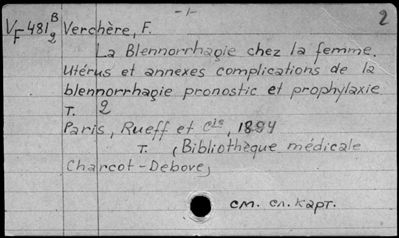 -1-
2
V_F 481 B/2 Verchère, F.
La Blennorrhagie chez la femme.
Utérus et annexes complications de la
blennorrhagie pronostic et prophylaxie
T. 2
Paris, Rueff et Cie, 1894
T. (Bibliothèque médicale
Charcot-Debove)
см. сл. карт.